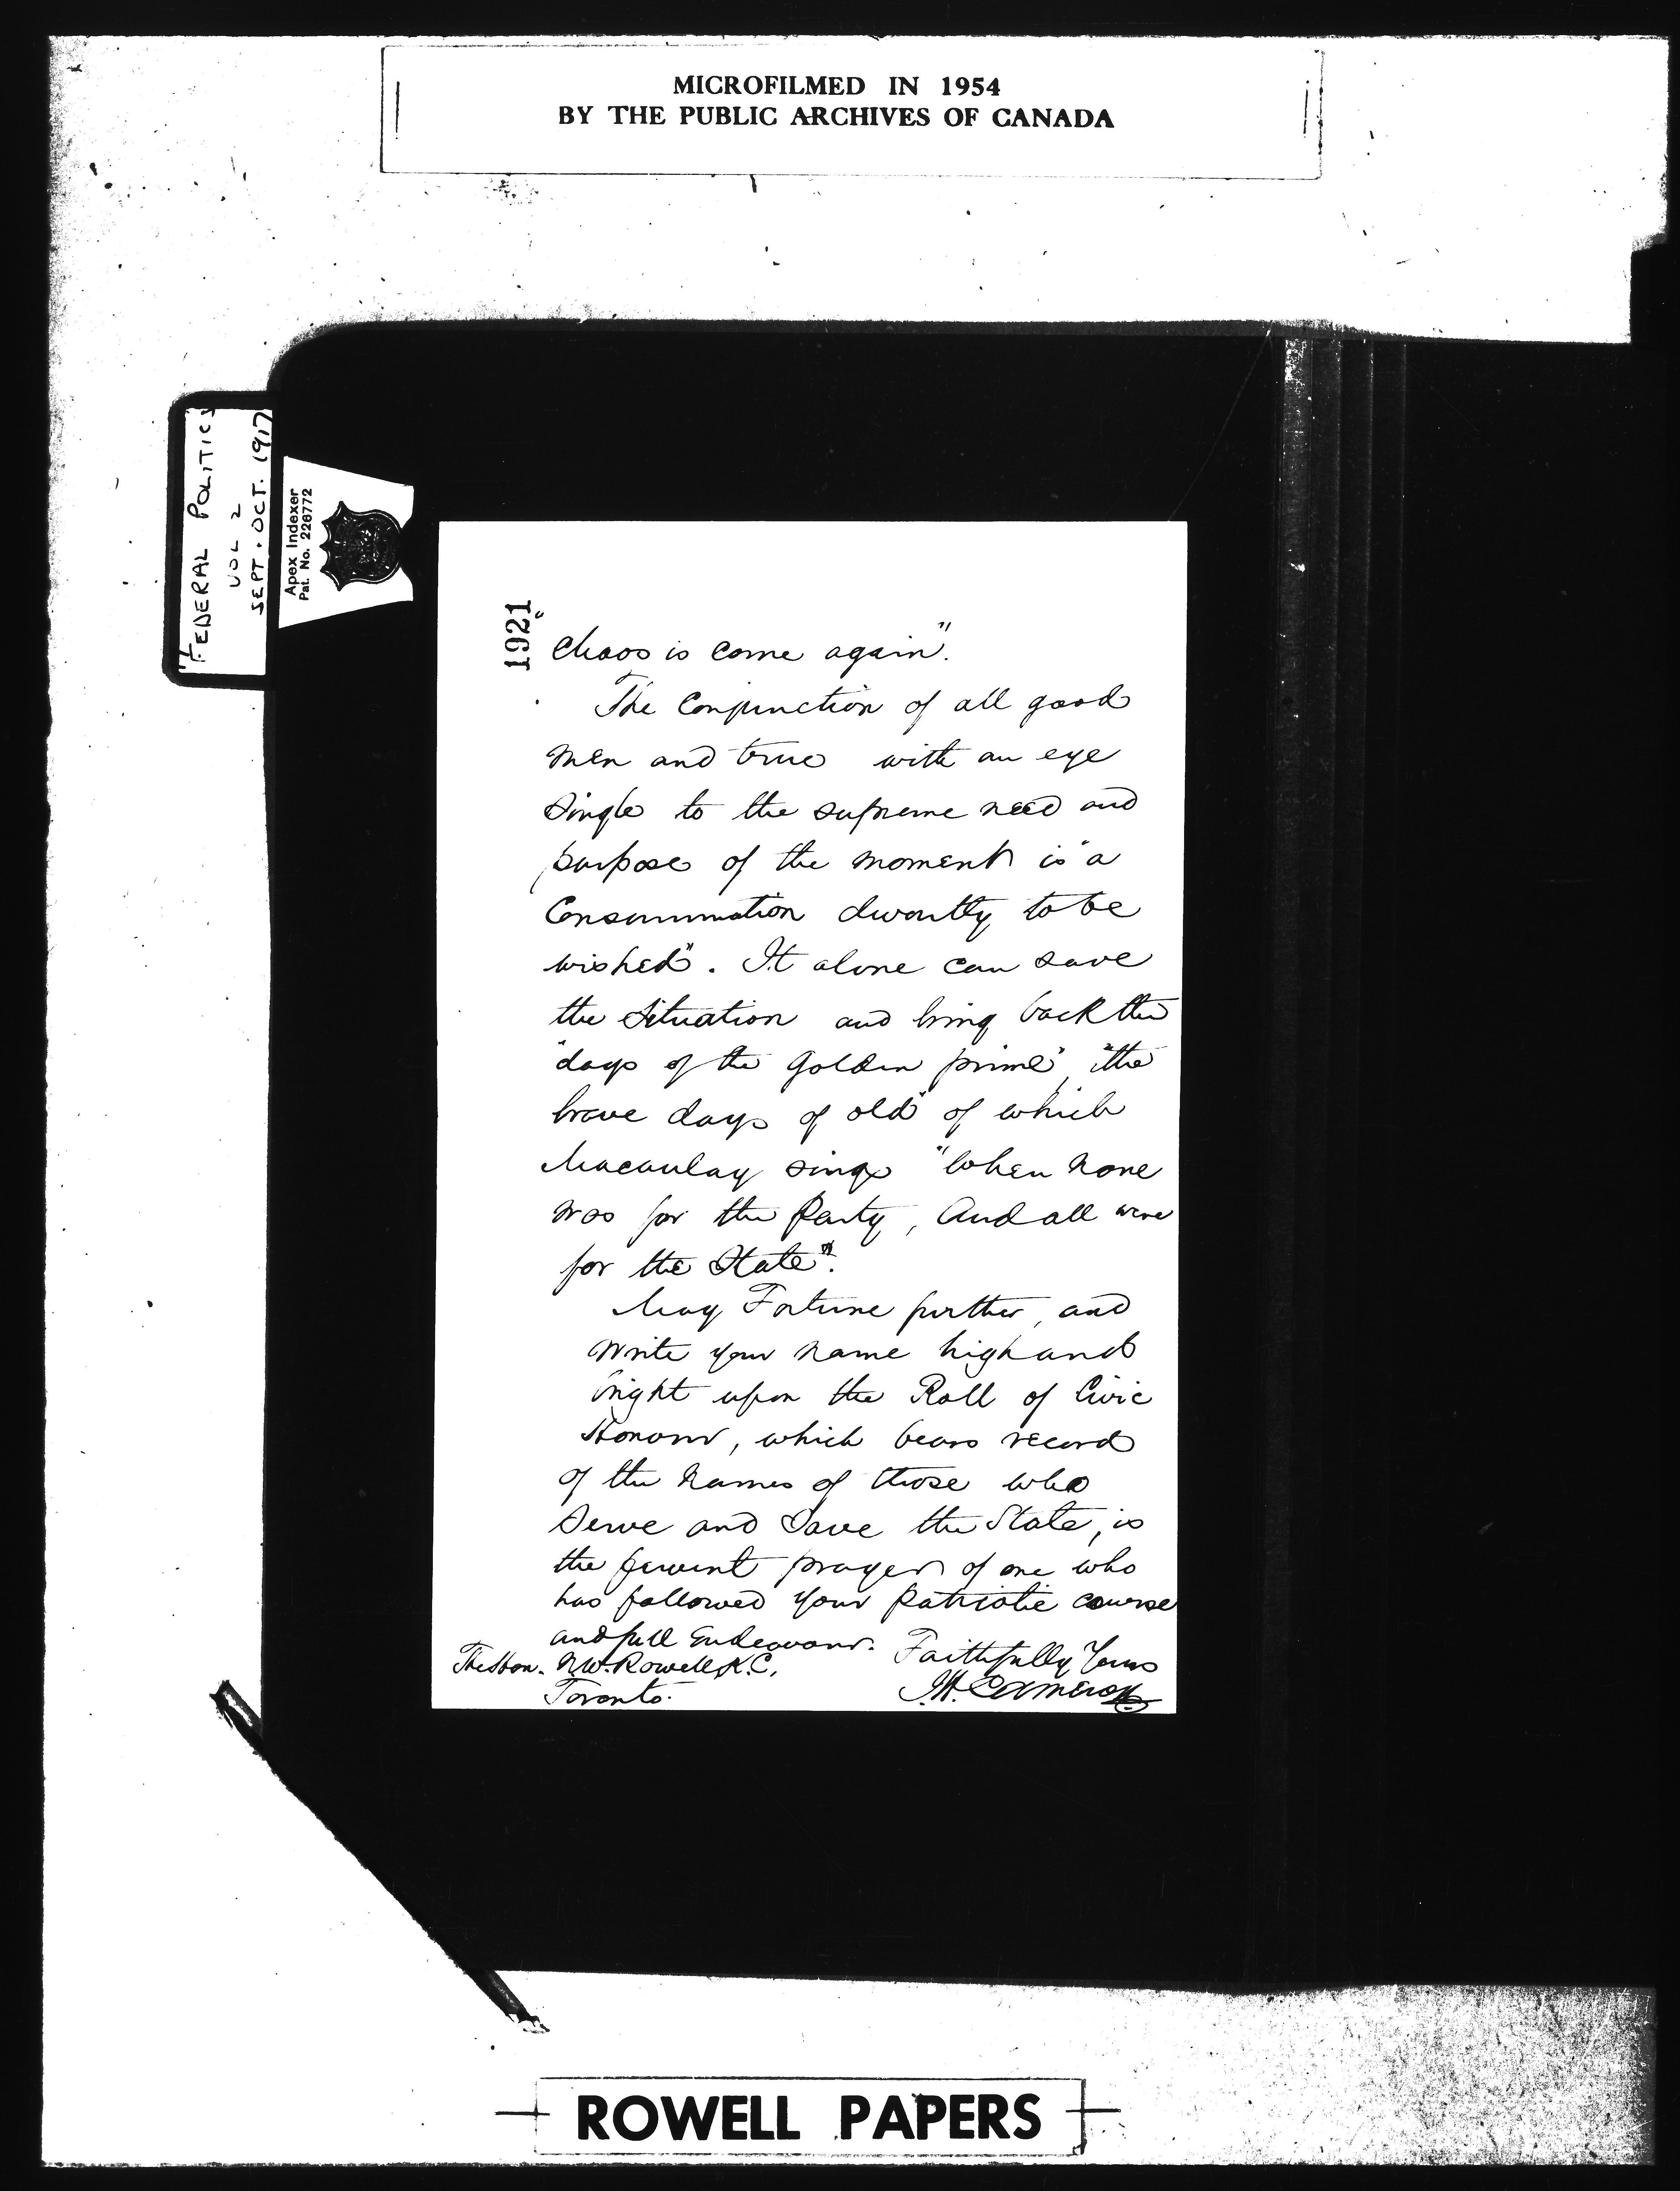 MICROFILMED IN 1954
BY THE PUBLIC ARCHIVES OF CANADA
FEDERAL POLITICS
VOL 2
SEPT. OCT. 1917
Apex Indexer
Pat. No. 226772
1921
"Chaos is come again".
The Conjunction of all good
men and true with an eye
single to the supreme need and
purpose of the moment is "a
Consummation devoutly to be
wished". It alone can save
the situation and bring back the
"days of the golden prime", "the
brave days of old" of which
Macaulay sings "When none
was for the Party, And all were
for the State".
May Fortune further, and
write your name high and
bright upon the Roll of Civic
Honour, which bears record
of the names of those who
Serve and Save the State, is
the fervent prayer of one who
has followed your patriotic course
and full Endeavour. Faithfully Yours
The Hon. N.W. Rowell, K.C.,
Toronto. J.H. Cameron
ROWELL PAPERS